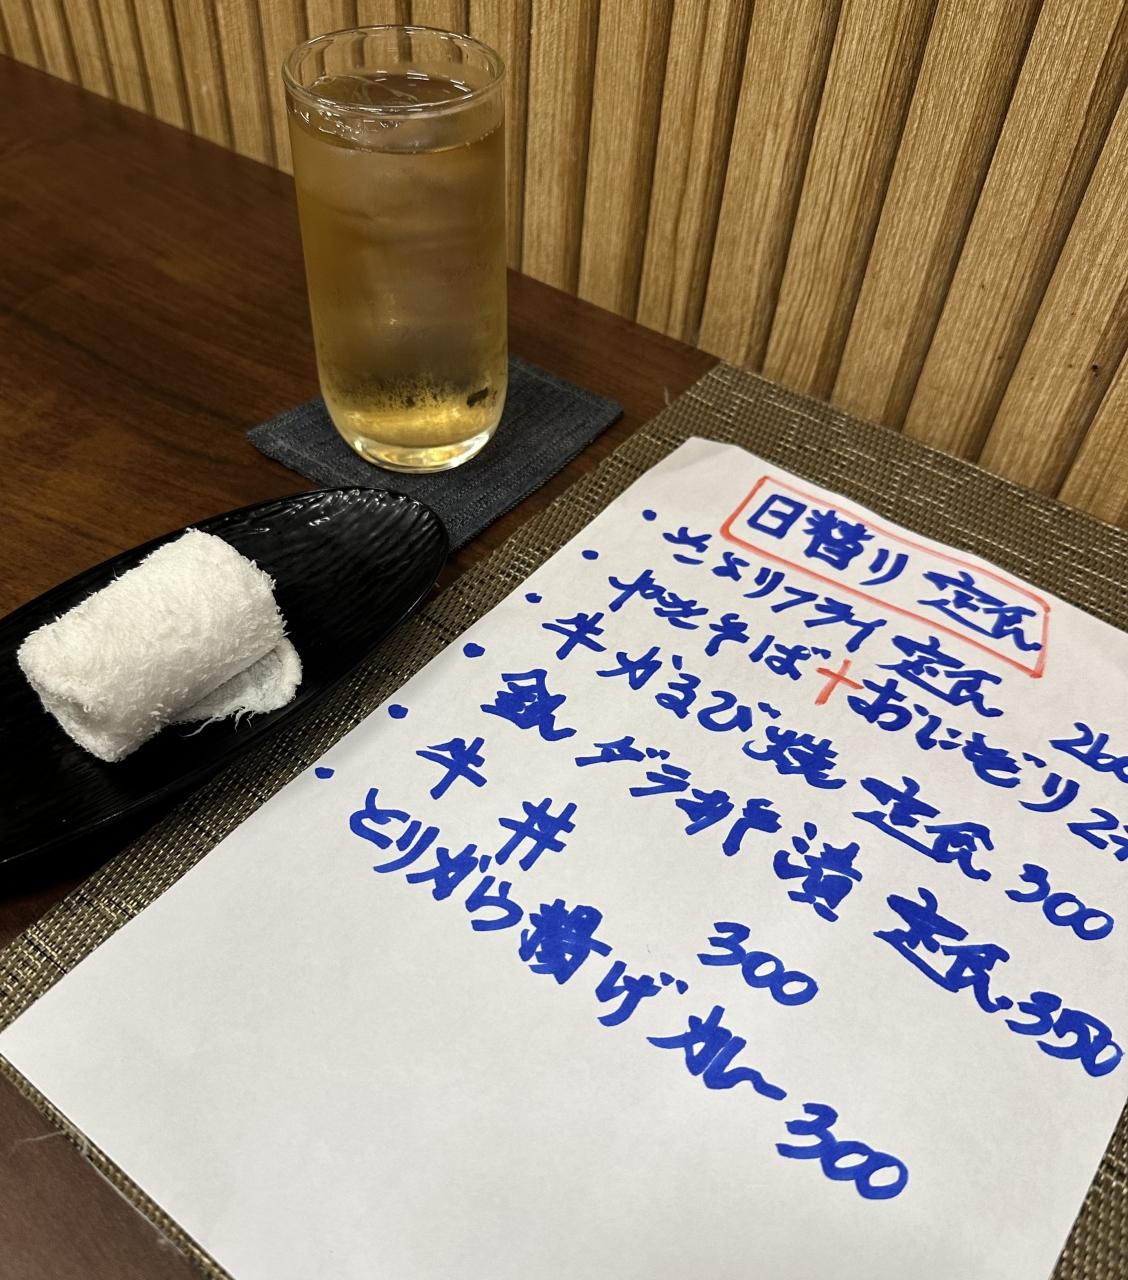 日替り定食
・さよりフライ定食 260
・やきそば+おにぎり 2
・牛かるび焼定食 300
・銀ダラ粕漬定食 350
・牛丼 300
・とりから揚げカレー 300